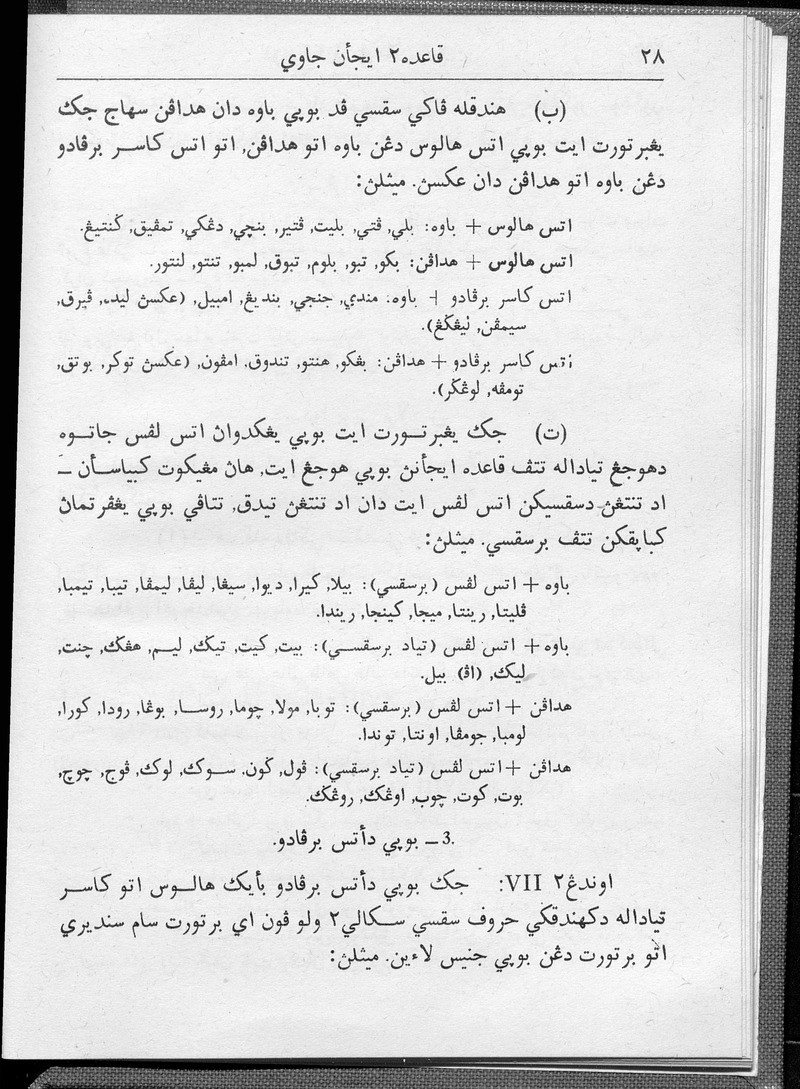 ٢٨
قاعده٢ ايجأن جاوي
(ب) هندقله ڤاكي سقسي ڤد بوڽي باوه دان هداڤن سهاج جک
يڠبرتورت ايت بوڽي اتس هالوس دڠن باوه اتو هداڤن, اتو اتس كاسر برڤادو
دڠن باوه اتو هداڤن دان عكسڽ. ميثلڽ:
اتس هالوس + باوه: بلي, ڤتي, بليت, ڤتير, بنچي, دڠكي, تمڤيق, ݢنتيڠ.
اتس هالوس + هداڤن: بكو, تبو, بلوم, تبوق, لمبو, تنتو, لنتور.
اتس كاسر برڤادو + باوه: مندي, جنجي, بنديڠ, امبيل, (عكسڽ ليده, ڤيرق,
سيمڤن, ليڠݢڠ).
اتس كاسر برڤادو + هداڤن: بڠكو, هنتو, تندوق, امڤون, (عكسڽ توكر, بوتق,
تومڤه, لوڠݢر).
(ت) جک يڠبرتورت ايت بوڽي يڠكدوان اتس لڤس جاتوه
دهوجڠ تياداله تتڤ قاعده ايجأنڽ بوڽي هوجڠ ايت, هاڽ مڠيكوت كبياسأن ــ
اد تنتڠن دسقسيكن اتس لڤس ايت دان اد تنتڠن تيدق, تتاڤي بوڽي يڠڤرتمان
كباڽقكن تتڤ برسقسي. ميثلڽ:
باوه + اتس لڤس (برسقسي): بيلا, كيرا, ديوا, سيڠا, ليڤا, ليمڤا, تيبا, تيمبا,
ڤليتا, رينتا, ميجا, كينجا, ريندا.
باوه + اتس لڤس (تياد برسقسي): بيت, كيت, تيݢ, ليم, هڠݢ, چنت,
ليک, (اڤ) بيل.
هداڤن + اتس لڤس (برسقسي): توبا, مولا, چوما, روسا, بوڠا, رودا, كورا,
لومبا, جومڤا, اونتا, توندا.
هداڤن + اتس لڤس (تياد برسقسي): ڤول, ݢون, سوک, لوک, ڤوج, چوچ,
بوت, كوت, چوب, اوڠݢ, روڠݢ.
3. ــ بوڽي دأتس برڤادو.
اوندڠ٢ VII: جک بوڽي دأتس برڤادو بأيک هالوس اتو كاسر
تياداله دكهندقكي حروف سقسي سكالي٢ ولو ڤون اي برتورت سام سنديري
اتو برتورت دڠن بوڽي جنيس لاءين. ميثلڽ: